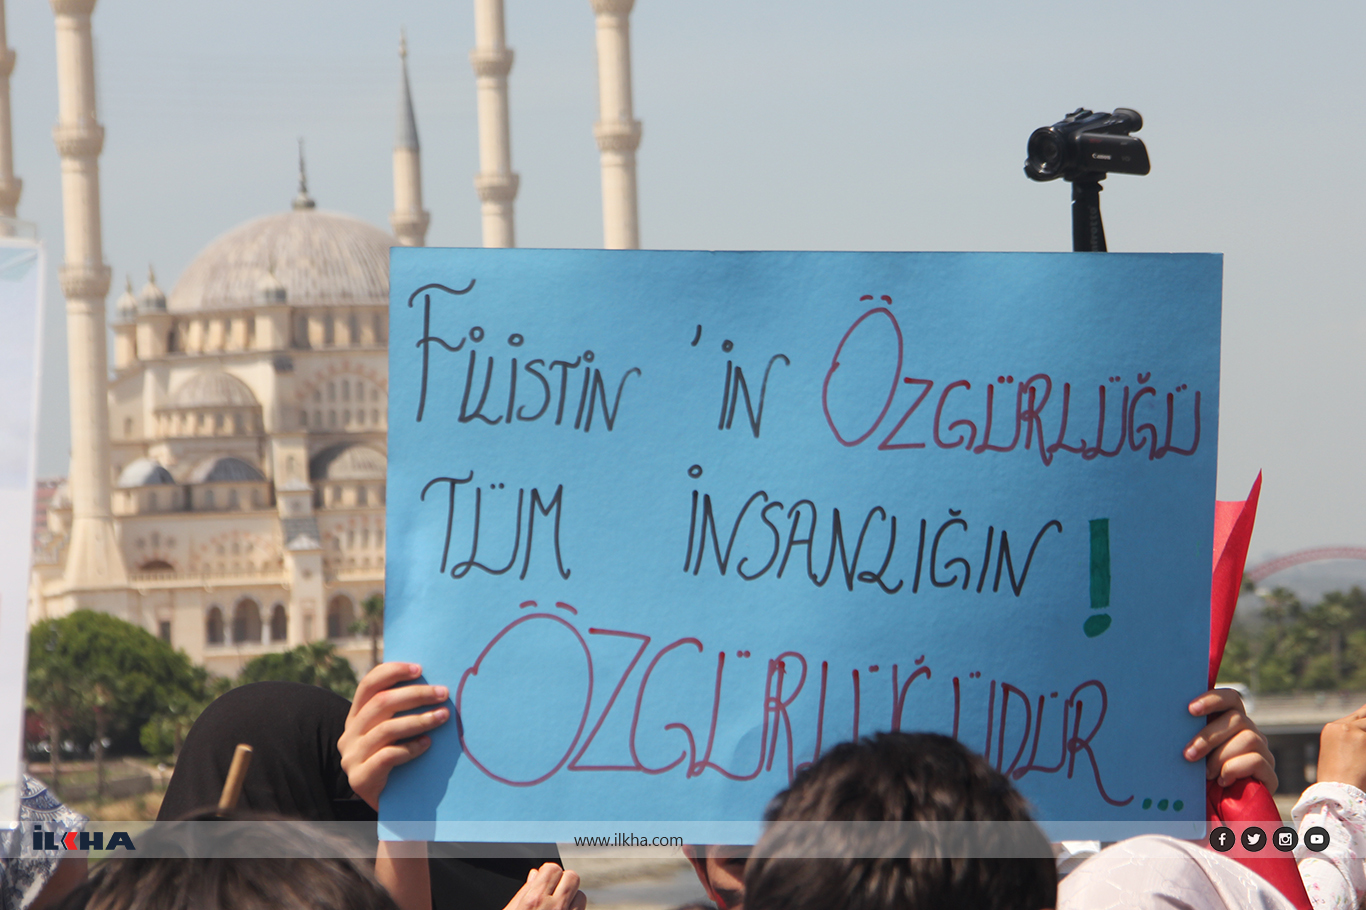 FİLİSTİN 'İN ÖZGÜRLÜĞÜ
TÜM İNSANLIĞIN !
ÖZGÜRLÜĞÜDÜR...
Canon
İLKHA
www.ilkha.com